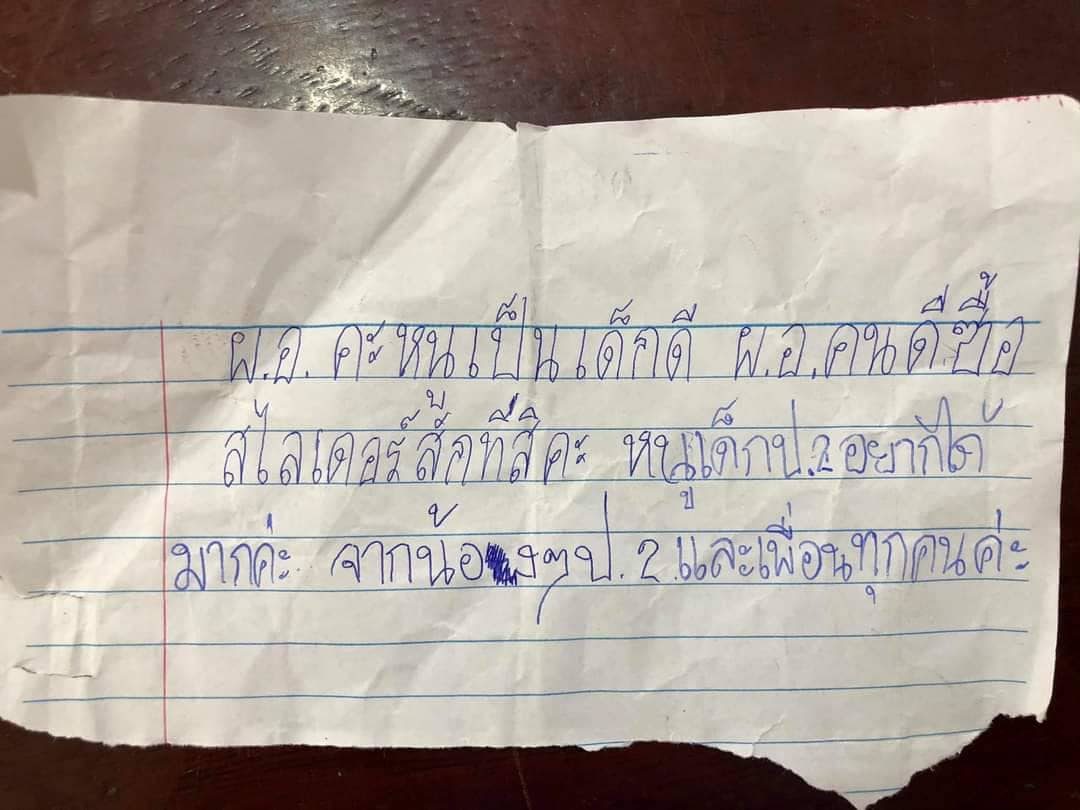 ผ.อ. คะหนูเป็นเด็กดี ผ.อ.คนดีซื้อ
สไลเดอร์สักทีสิคะ หนูเด็กป.2อยากได้
มากค่ะ จากน้องๆป.2.และเพื่อนทุกคนค่ะ